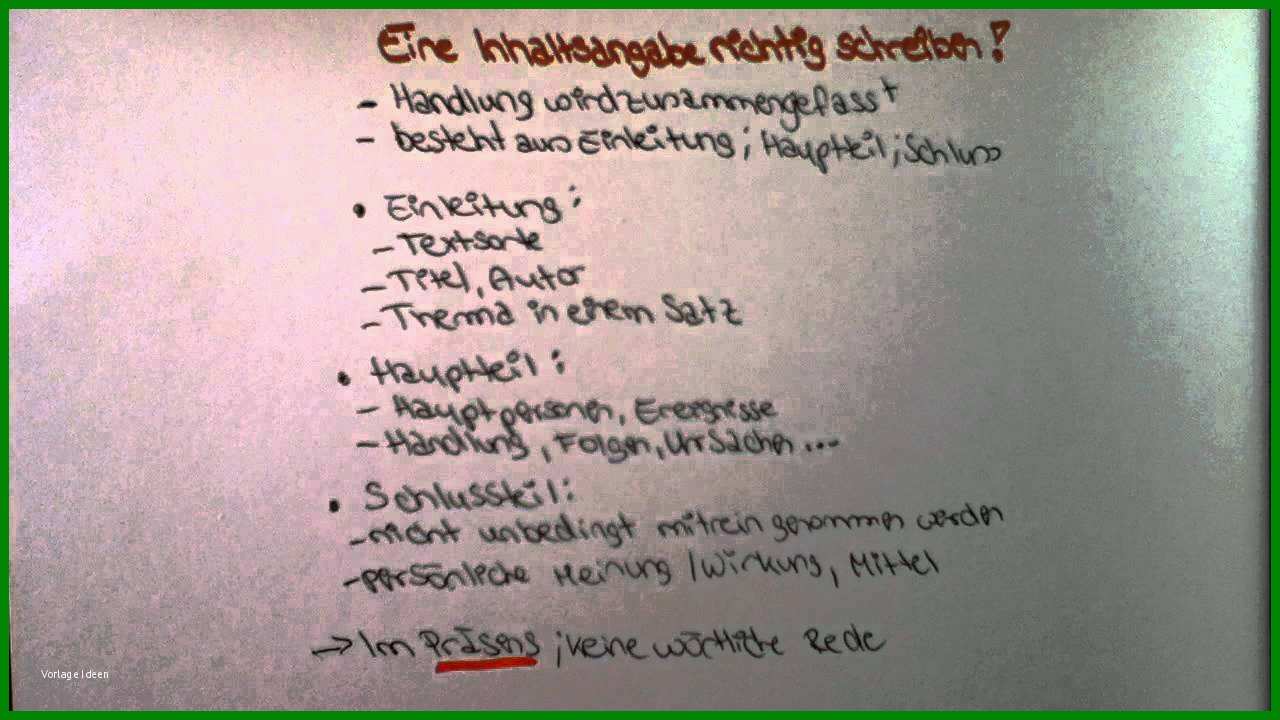 Eine Inhaltsangabe richtig schreiben!
- Handlung wird zusammengefasst
- besteht aus Einleitung; Hauptteil; Schluss
• Einleitung:
- Textsorte
- Titel, Autor
- Thema in einem Satz
• Hauptteil:
- Hauptpersonen, Ereignisse
- Handlung, Folgen, Ursachen ...
• Schlussteil:
- nicht unbedingt mitrein genommen werden
- persönliche Meinung / Wirkung, Mittel
→ Im Präsens; keine wörtliche Rede
Vorlage Ideen